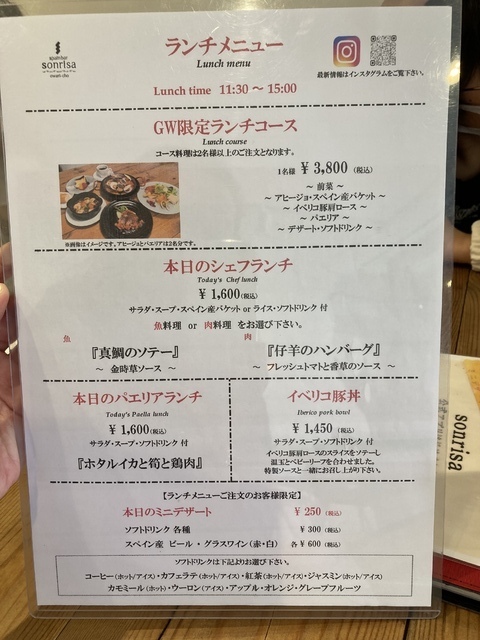 spain bar
sonrisa
ランチメニュー
Lunch menu
最新情報はインスタグラムをご覧下さい。
Lunch time 11:30 〜 15:00
GW限定ランチコース
Lunch course
コース料理は2名様以上のご注文となります。
1名様 ¥3,800 (税込)
〜 前菜 〜
〜 アヒージョ・スペイン産バケット 〜
〜 イベリコ豚肩ロース 〜
〜 パエリア 〜
〜 デザート・ソフトドリンク 〜
※画像はイメージです。アヒージョとパエリアは2名分です。
本日のシェフランチ
Today's Chef lunch
¥1,600(税込)
サラダ・スープ・スペイン産バケット or ライス・ソフトドリンク 付
魚料理 or 肉料理 をお選び下さい。
魚
『真鯛のソテー』
〜 金時草ソース 〜
肉
『仔羊のハンバーグ』
〜 フレッシュトマトと香草のソース 〜
本日のパエリアランチ
Today's Paella lunch
¥1,600(税込)
サラダ・スープ・ソフトドリンク 付
『ホタルイカと筍と鶏肉』
イベリコ豚丼
Iberico pork bowl
¥1,450 (税込)
サラダ・スープ・ソフトドリンク 付
イベリコ豚肩ロースのスライスをソテーし
温玉とベビーリーフを合わせました。
特製ソースと一緒にお召し上がり下さい。
【ランチメニューご注文のお客様限定】
本日のミニデザート ¥250 (税込)
ソフトドリンク 各種 ¥300 (税込)
スペイン産 ビール・グラスワイン(赤・白) 各¥600 (税込)
ソフトドリンクは下記よりお選び下さい。
コーヒー(ホット/アイス)・カフェラテ(ホット/アイス)・紅茶(ホット/アイス)・ジャスミン(ホット/アイス)
カモミール(ホット)・ウーロン(アイス)・アップル・オレンジ・グレープフルーツ
sonrisa